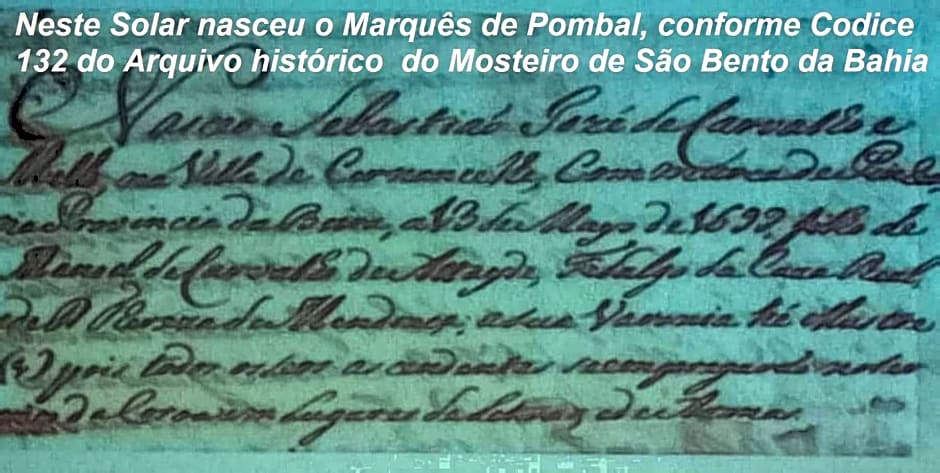 Neste Solar nasceu o Marquês de Pombal, conforme Codice
132 do Arquivo histórico do Mosteiro de São Bento da Bahia
Nasceo Sebastião José de Carvalho e
Mello, na Villa de Cernancelhe, Comendadoria de
na Provincia da Beira, a 13 de Mayo de 1699, filho de
Manoel de Carvalho de Attayde, Fidalgo da Caza Real,
de D. Thereza de Mendonça; a sua Varonia hé illustre
(4) pois todos os seus ascendentes
de Coroa em Lugares de Letras, e de Armas.